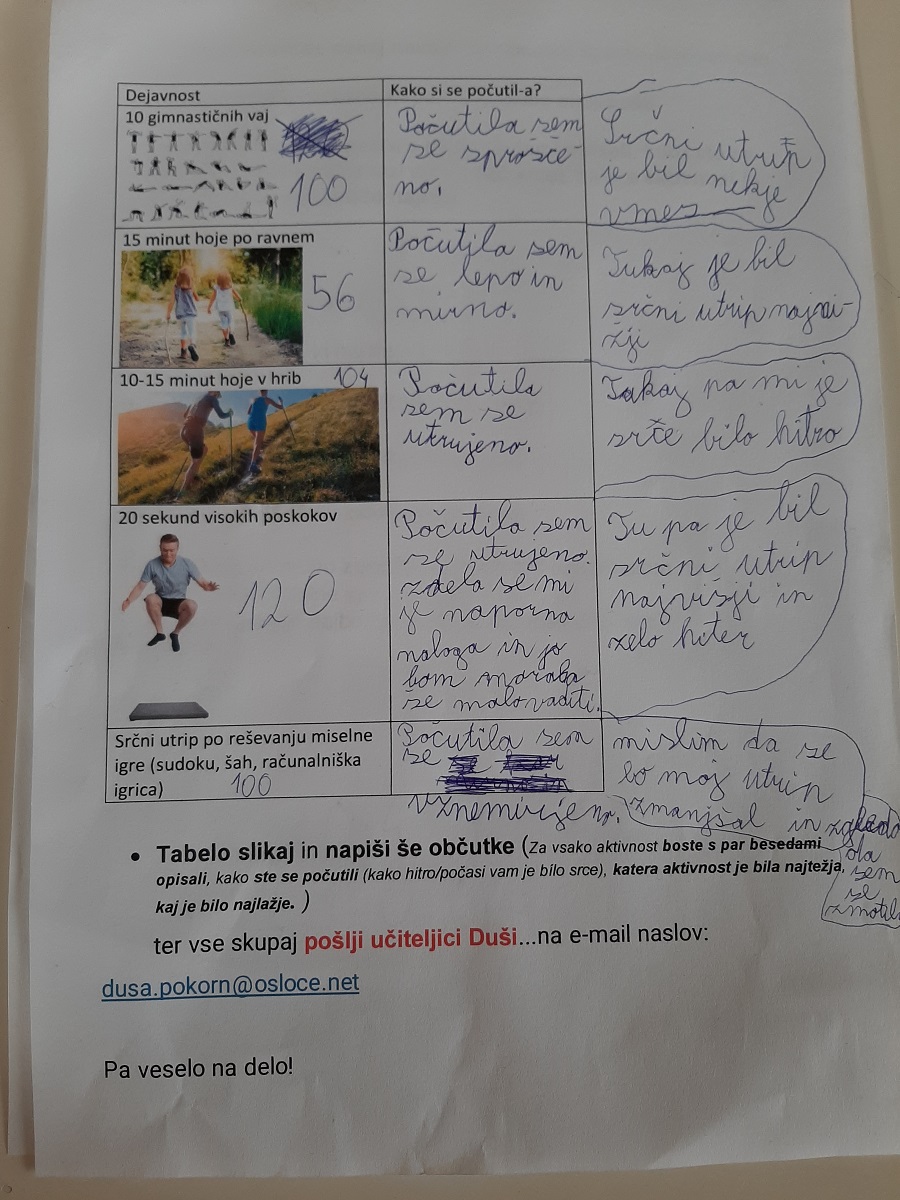 Dejavnost
Kako si se počutil-a?
10 gimnastičnih vaj
100
Počutila sem
se sprošče-
no.
Srčni utrip
je bil nekje
vmes
15 minut hoje po ravnem
56
Počutila sem
se lepo in
mirno.
Tukaj je bil
srčni utrip najni-
žji
10-15 minut hoje v hrib 104
Počutila
sem se
utrujeno.
Tukaj pa mi je
srče bilo hitro
20 sekund visokih poskokov
120
Počutila sem
se utrujeno.
zdela se mi
je naporna
naloga in jo
bom morala
še malo vaditi.
Tu pa je bil
srčni utrip
najvišji in
zelo hiter
Srčni utrip po reševanju miselne
igre (sudoku, šah, računalniška
igrica) 100
Počutila sem
se
vznemirjeno.
mislim da se
bo moj utrip
zmanjšal in zgleda
da
sem
se
zmotila
• Tabelo slikaj in napiši še občutke (Za vsako aktivnost boste s par besedami
opisali, kako ste se počutili (kako hitro/počasi vam je bilo srce), katera aktivnost je bila najtežja,
kaj je bilo najlažje. )
ter vse skupaj pošlji učiteljici Duši...na e-mail naslov:
dusa.pokorn@osloce.net
Pa veselo na delo!